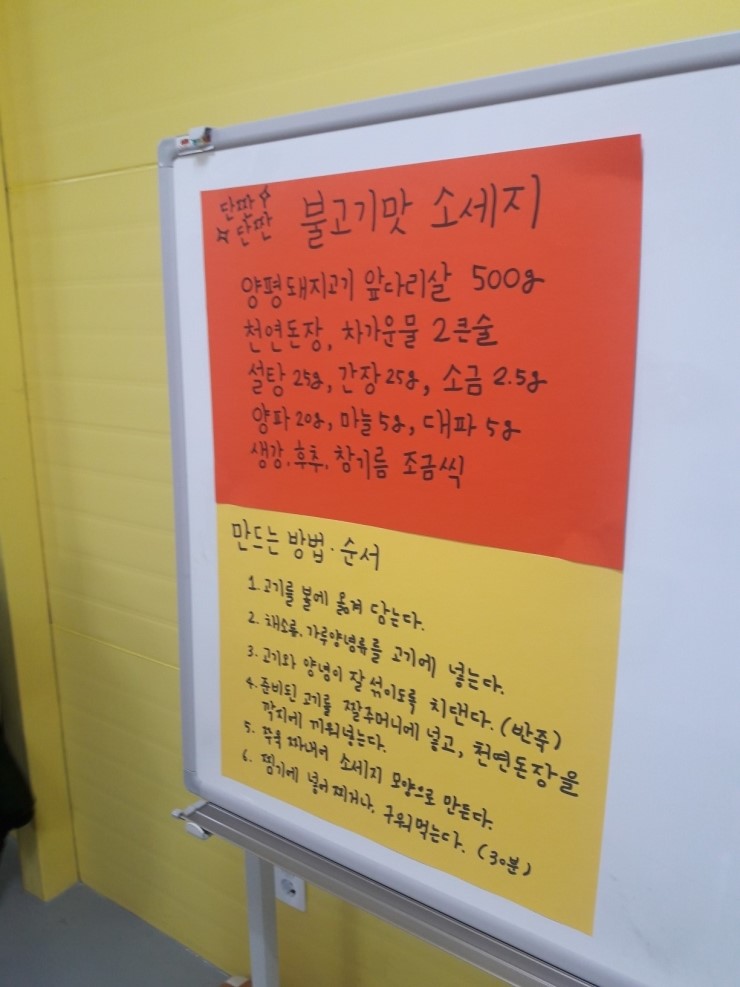 단짠
단짠
불고기맛 소세지
양평돼지고기 앞다리살 500g
천연돈장, 차가운물 2큰술
설탕 25g, 간장 25g, 소금 2.5g
양파 20g, 마늘 5g, 대파 5g
생강, 후추, 참기름 조금씩
만드는 방법·순서
1. 고기를 볼에 옮겨 담는다.
2. 채소류, 가루양념류를 고기에 넣는다.
3. 고기와 양념이 잘 섞이도록 치댄다. (반죽)
4. 준비된 고기를 짤주머니에 넣고, 천연돈장을
깍지에 끼워넣는다.
5. 쭈욱 짜내어 소세지 모양으로 만든다.
6. 찜기에 넣어 찌거나, 구워먹는다. (30분)